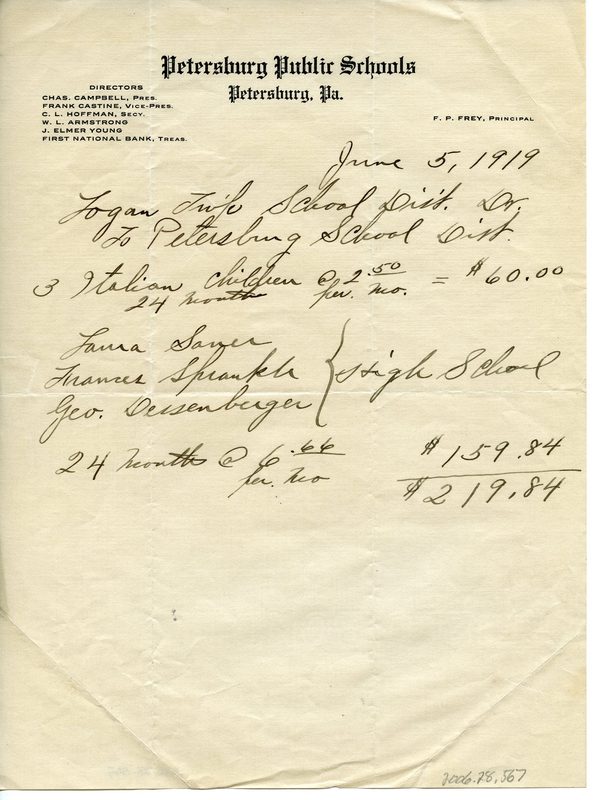 Petersburg Public Schools
Petersburg, Pa.
DIRECTORS
CHAS. CAMPBELL, PRES.
FRANK CASTINE, VICE-PRES.
C. L. HOFFMAN, SECY.
W. L. ARMSTRONG
J. ELMER YOUNG
FIRST NATIONAL BANK, TREAS.
F. P. FREY, PRINCIPAL
June 5, 1919
Logan Twp School Dist. Dr.
To Petersburg School Dist.
3 Italian children @ 2.50 = $60.00
24 months per. mo.
Laura
Frances Sprankle
Geo. Dessenberger
High School
24 months @ 6.66 $159.84
per. mo $219.84
2006.28.567